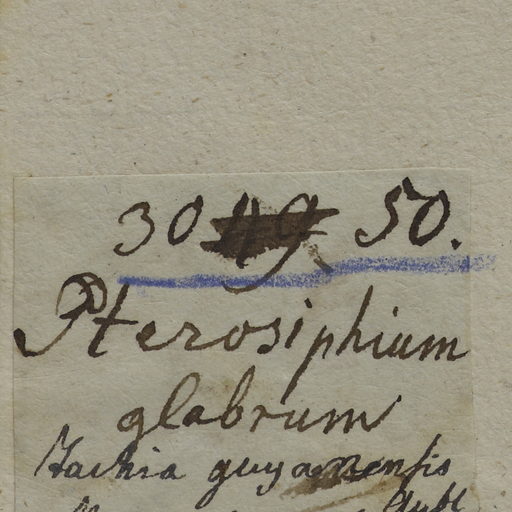 30 50.
Pterosiphium
glabrum
Tachia guyanensis
Aubl